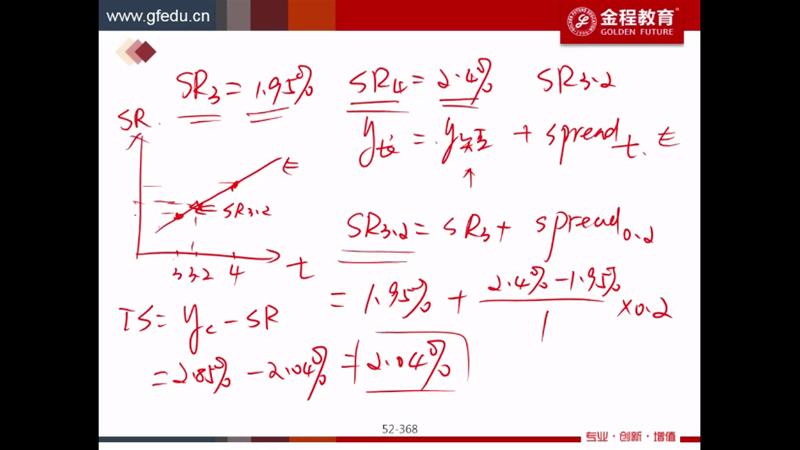 www.gfedu.cn
金程教育
GOLDEN FUTURE
SR3 = 1.95% SR4 = 2.4% SR3.2
y长 = y短 + spread t. 上
SR
上
SR3.2
3 3.2 4 t
SR3.2 = SR3 + spread0.2
= 1.95% + 2.4% - 1.95% / 1 × 0.2
TS = yc - SR
= 2.85% - 2.04% = 2.04%
52-368
专业·创新·增值